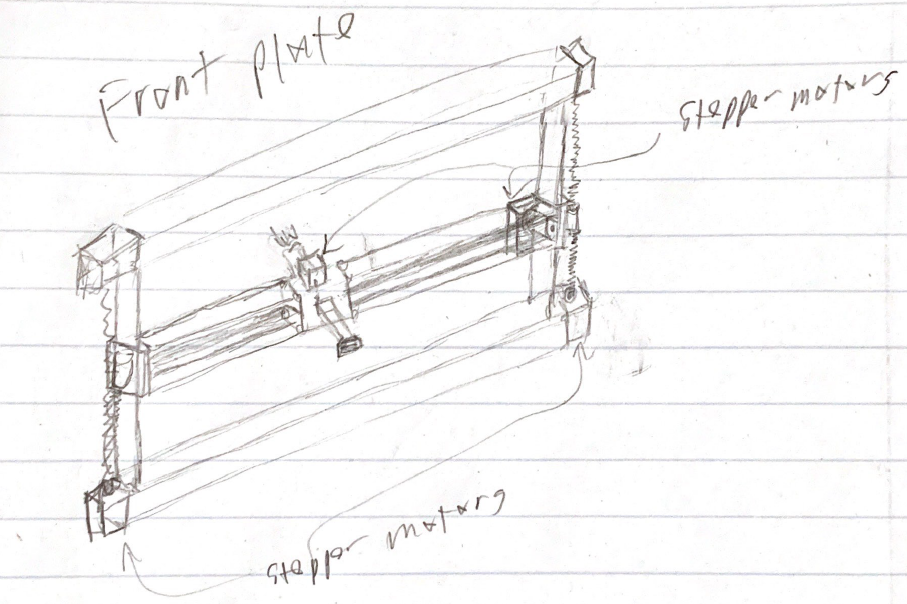 Front plate
stepper motors
stepper motors